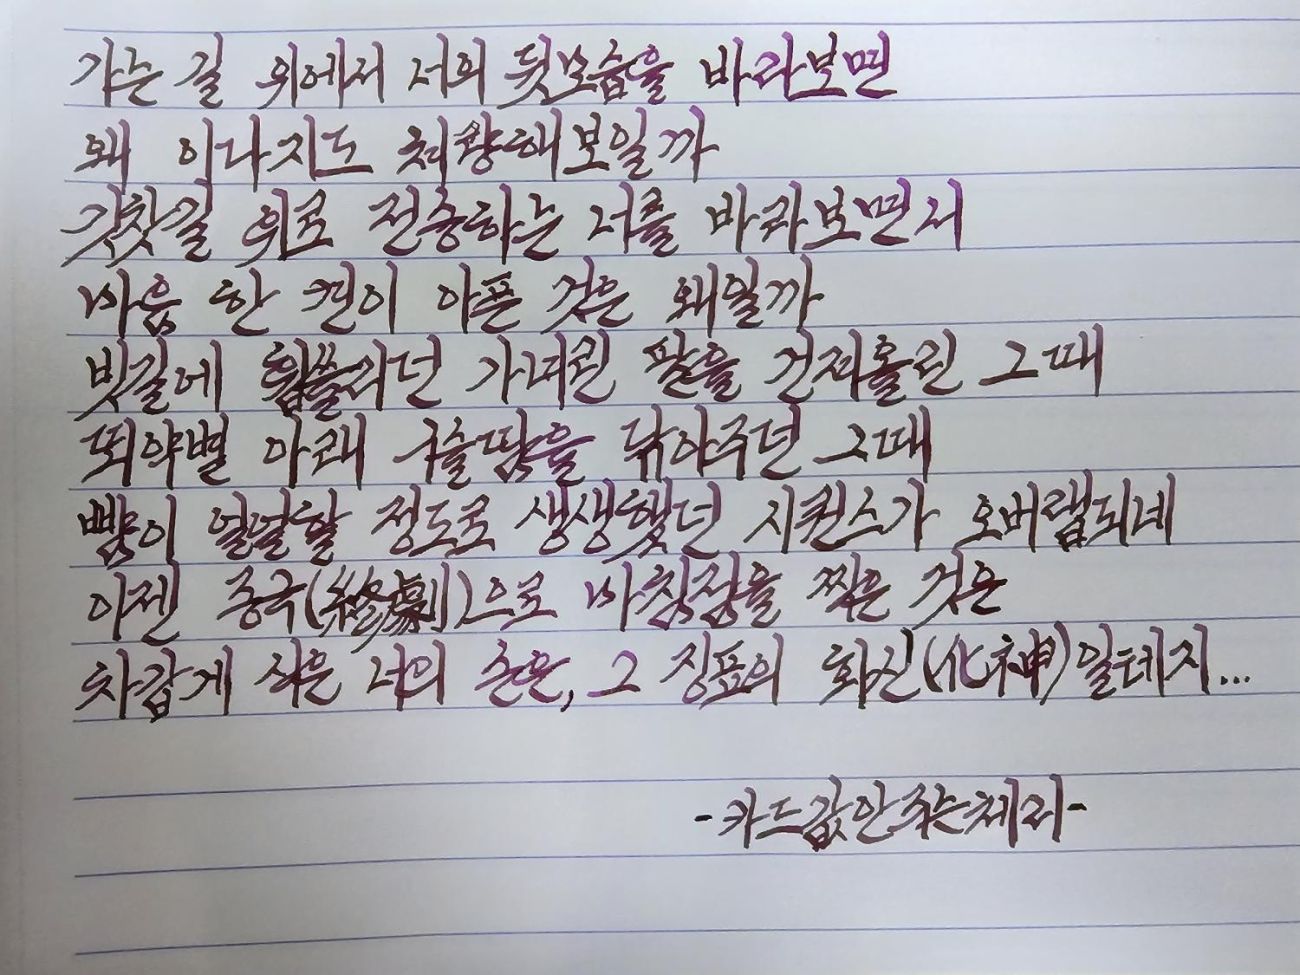 가는 길 위에서 너의 뒷모습을 바라보면
왜 이다지도 처량해보일까
깃찻길 위로 전증하는 너를 바라보면서
마음 한 켠이 아픈 것은 왜일까
빗길에 휩쓸리던 가녀린 팔을 건져올린 그때
뙤약볕 아래 구슬땀을 닦아주던 그때
뺨이 얼얼할 정도로 생생했던 시퀀스가 오버랩되네
이젠 종극(終劇)으로 마침점을 찍은 것은
차갑게 식은 너의 손은, 그 징표의 화신(化神)일테지...
-카드값안주는체리-